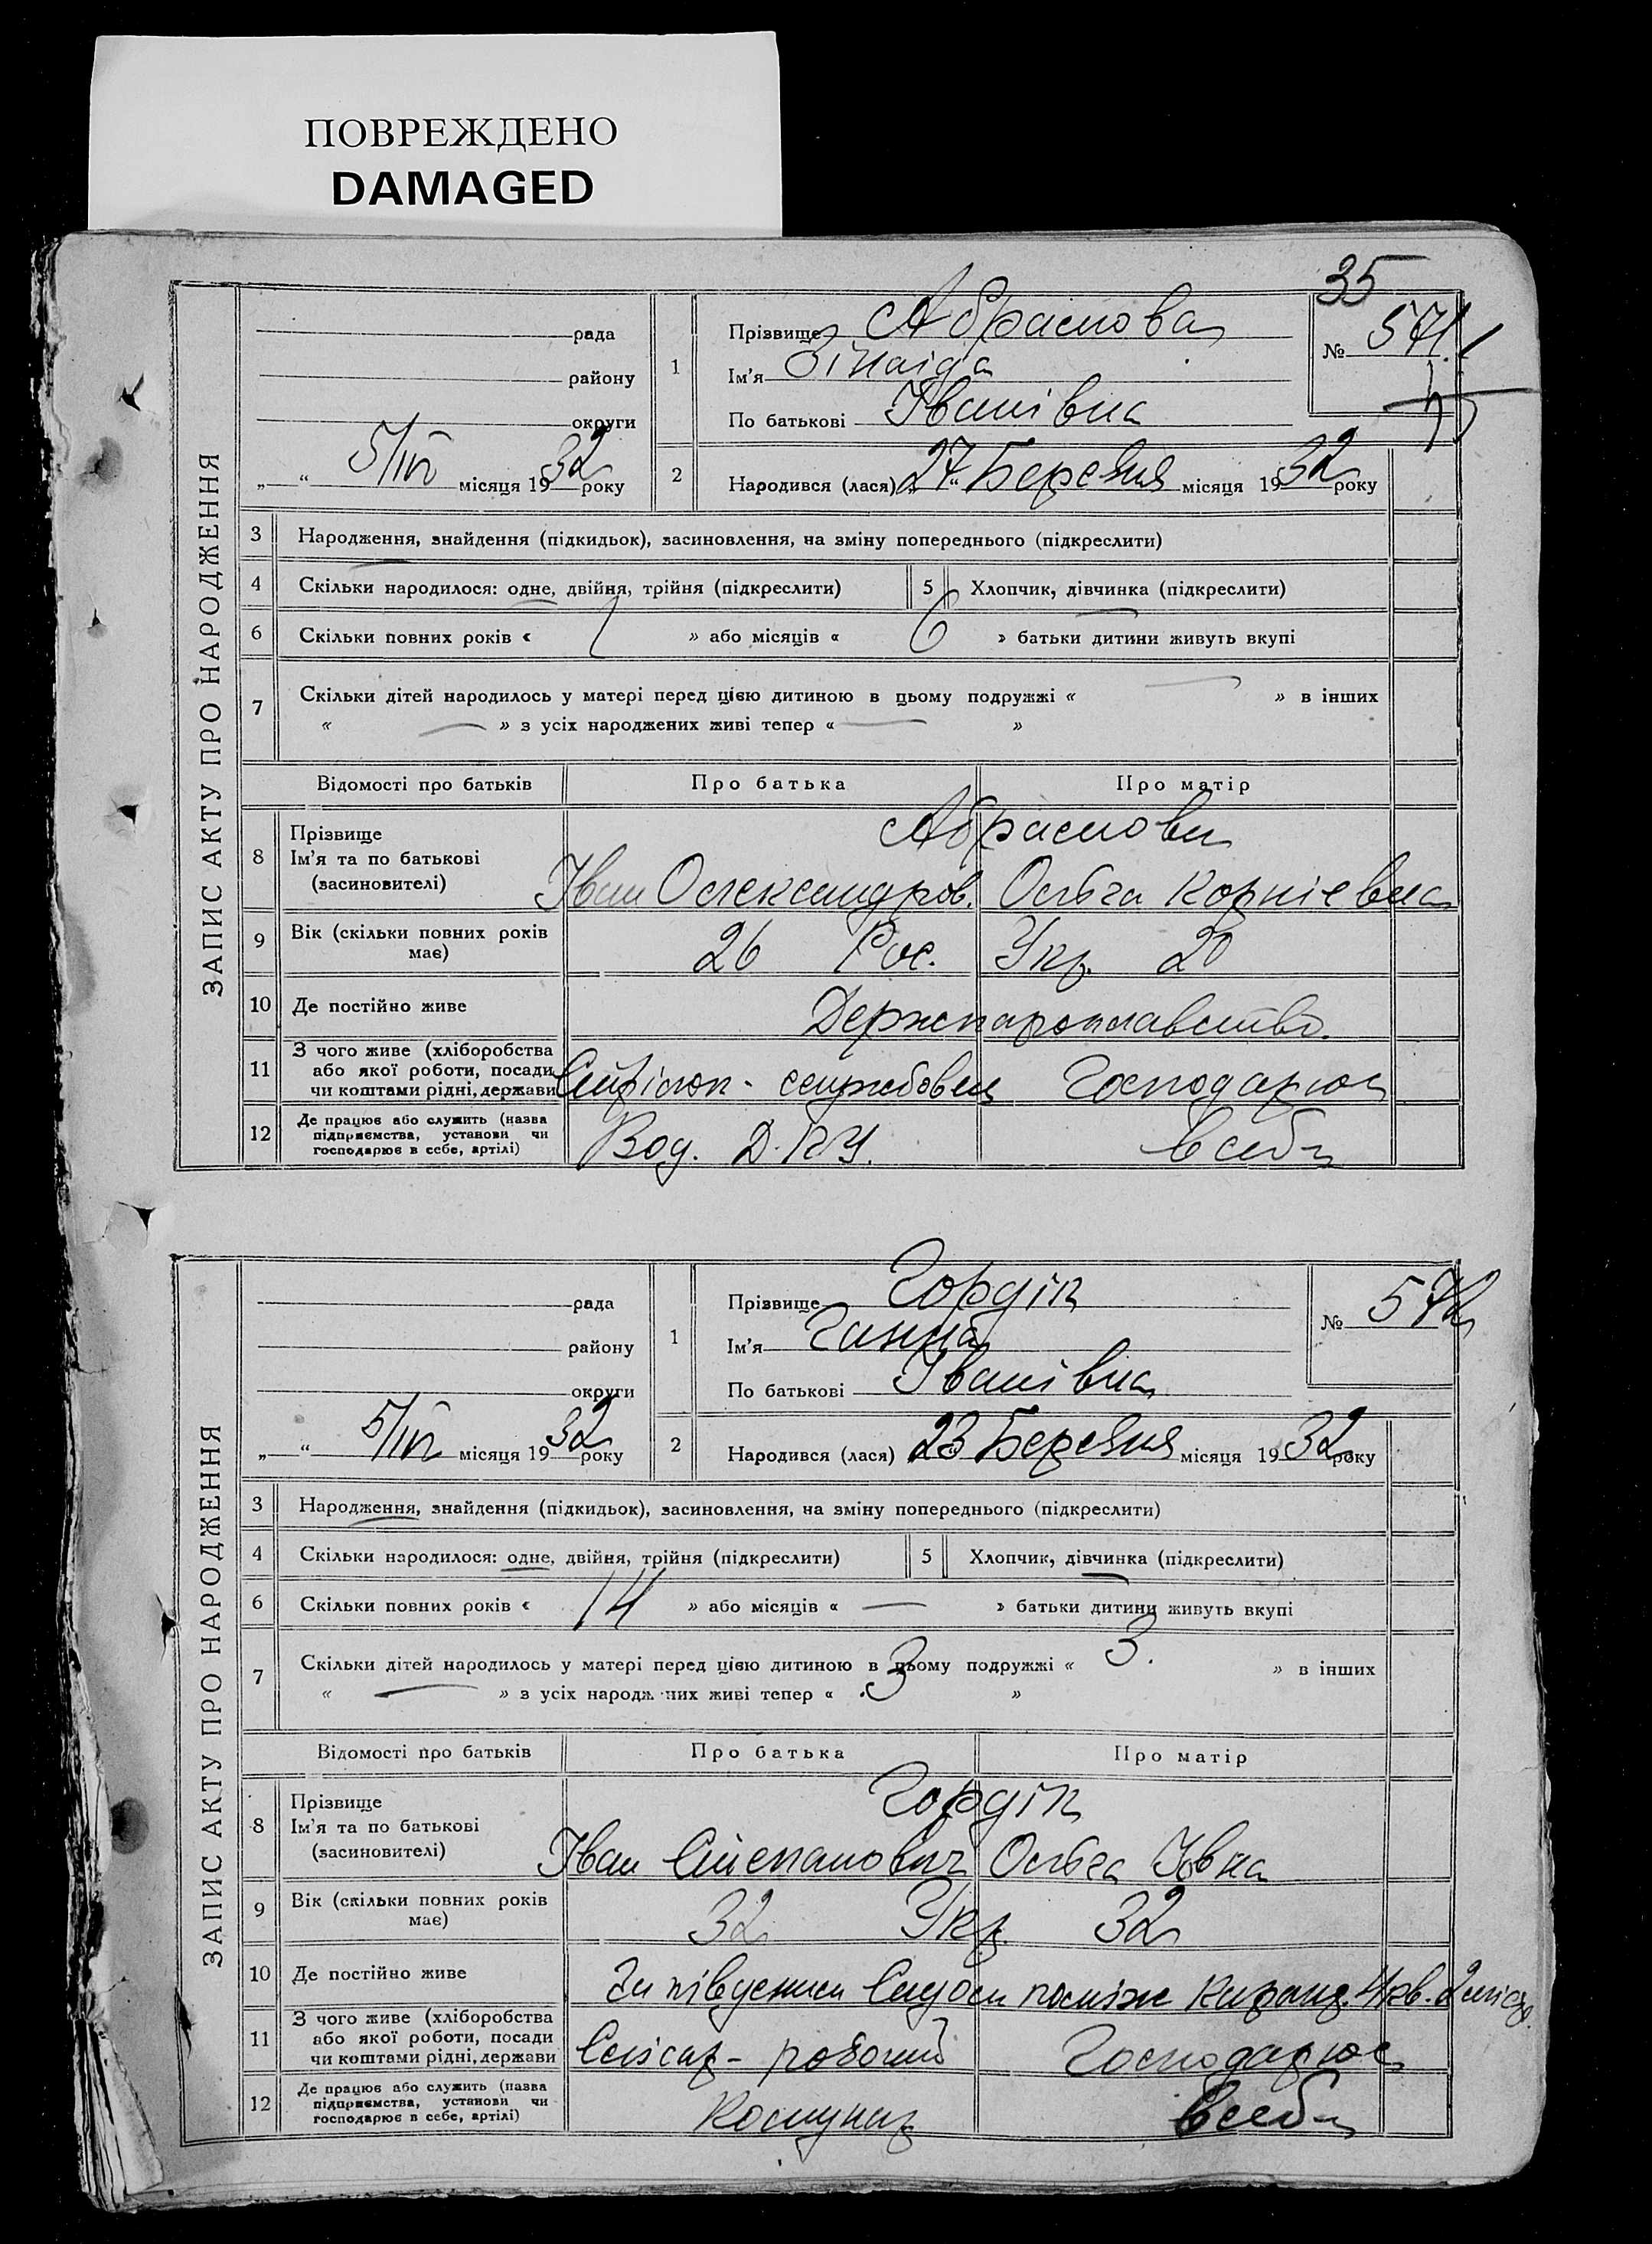 ПОВРЕЖДЕНО
DAMAGED
35
ЗАПИС АКТУ ПРО НАРОДЖЕННЯ
рада
району
округи
„ “ 5/IV місяця 1932 року
1
Прізвище Абрамова
Ім'я Зінаїда
По батькові Іванівна
№ 571
2 Народився (лася) „27“ Березня місяця 1932 року
3 Народження, знайдення (підкидьок), засиновлення, на зміну попереднього (підкреслити)
4 Скільки народилося: одне, двійня, трійня (підкреслити) 5 Хлопчик, дівчинка (підкреслити)
6 Скільки повних років « » або місяців « 6 » батьки дитини живуть вкупі
7 Скільки дітей народилось у матері перед цією дитиною в цьому подружжі « — » в інших
« — » з усіх народжених живі тепер « — »
Відомості про батьків Про батька Про матір
8 Прізвище
Ім'я та по батькові
(засиновителі)
Абрамови
Іван Олександров. Ольга Корнієвна
9 Вік (скільки повних років має) 26 Рос. Укр. 20
10 Де постійно живе Держпароплавство.
11 З чого живе (хліборобства
або якої роботи, посади
чи коштами рідні, держави
службовец Господарює
12 Де працює або служить (назва
підприємства, установи чи
господарює в себе, артілі)
Вод. в себе
ЗАПИС АКТУ ПРО НАРОДЖЕННЯ
рада
району
округи
„ “ 5/IV місяця 1932 року
1
Прізвище Гордік
Ім'я Ганна
По батькові Іванівна
№ 572
2 Народився (лася) 23 Березня місяця 1932 року
3 Народження, знайдення (підкидьок), засиновлення, на зміну попереднього (підкреслити)
4 Скільки народилося: одне, двійня, трійня (підкреслити) 5 Хлопчик, дівчинка (підкреслити)
6 Скільки повних років « 14 » або місяців « — » батьки дитини живуть вкупі
7 Скільки дітей народилось у матері перед цією дитиною в цьому подружжі « 3. » в інших
« — » з усіх народжених живі тепер « 3 »
Відомості про батьків Про батька Про матір
8 Прізвище
Ім'я та по батькові
(засиновителі)
Гордік
Іван Степанович Ольга Івна
9 Вік (скільки повних років має) 32 Укр. 32
10 Де постійно живе 4 кв. 2
11 З чого живе (хліборобства
або якої роботи, посади
чи коштами рідні, держави
Слісар - робочий Господарює
12 Де працює або служить (назва
підприємства, установи чи
господарює в себе, артілі)
Комунар в себе